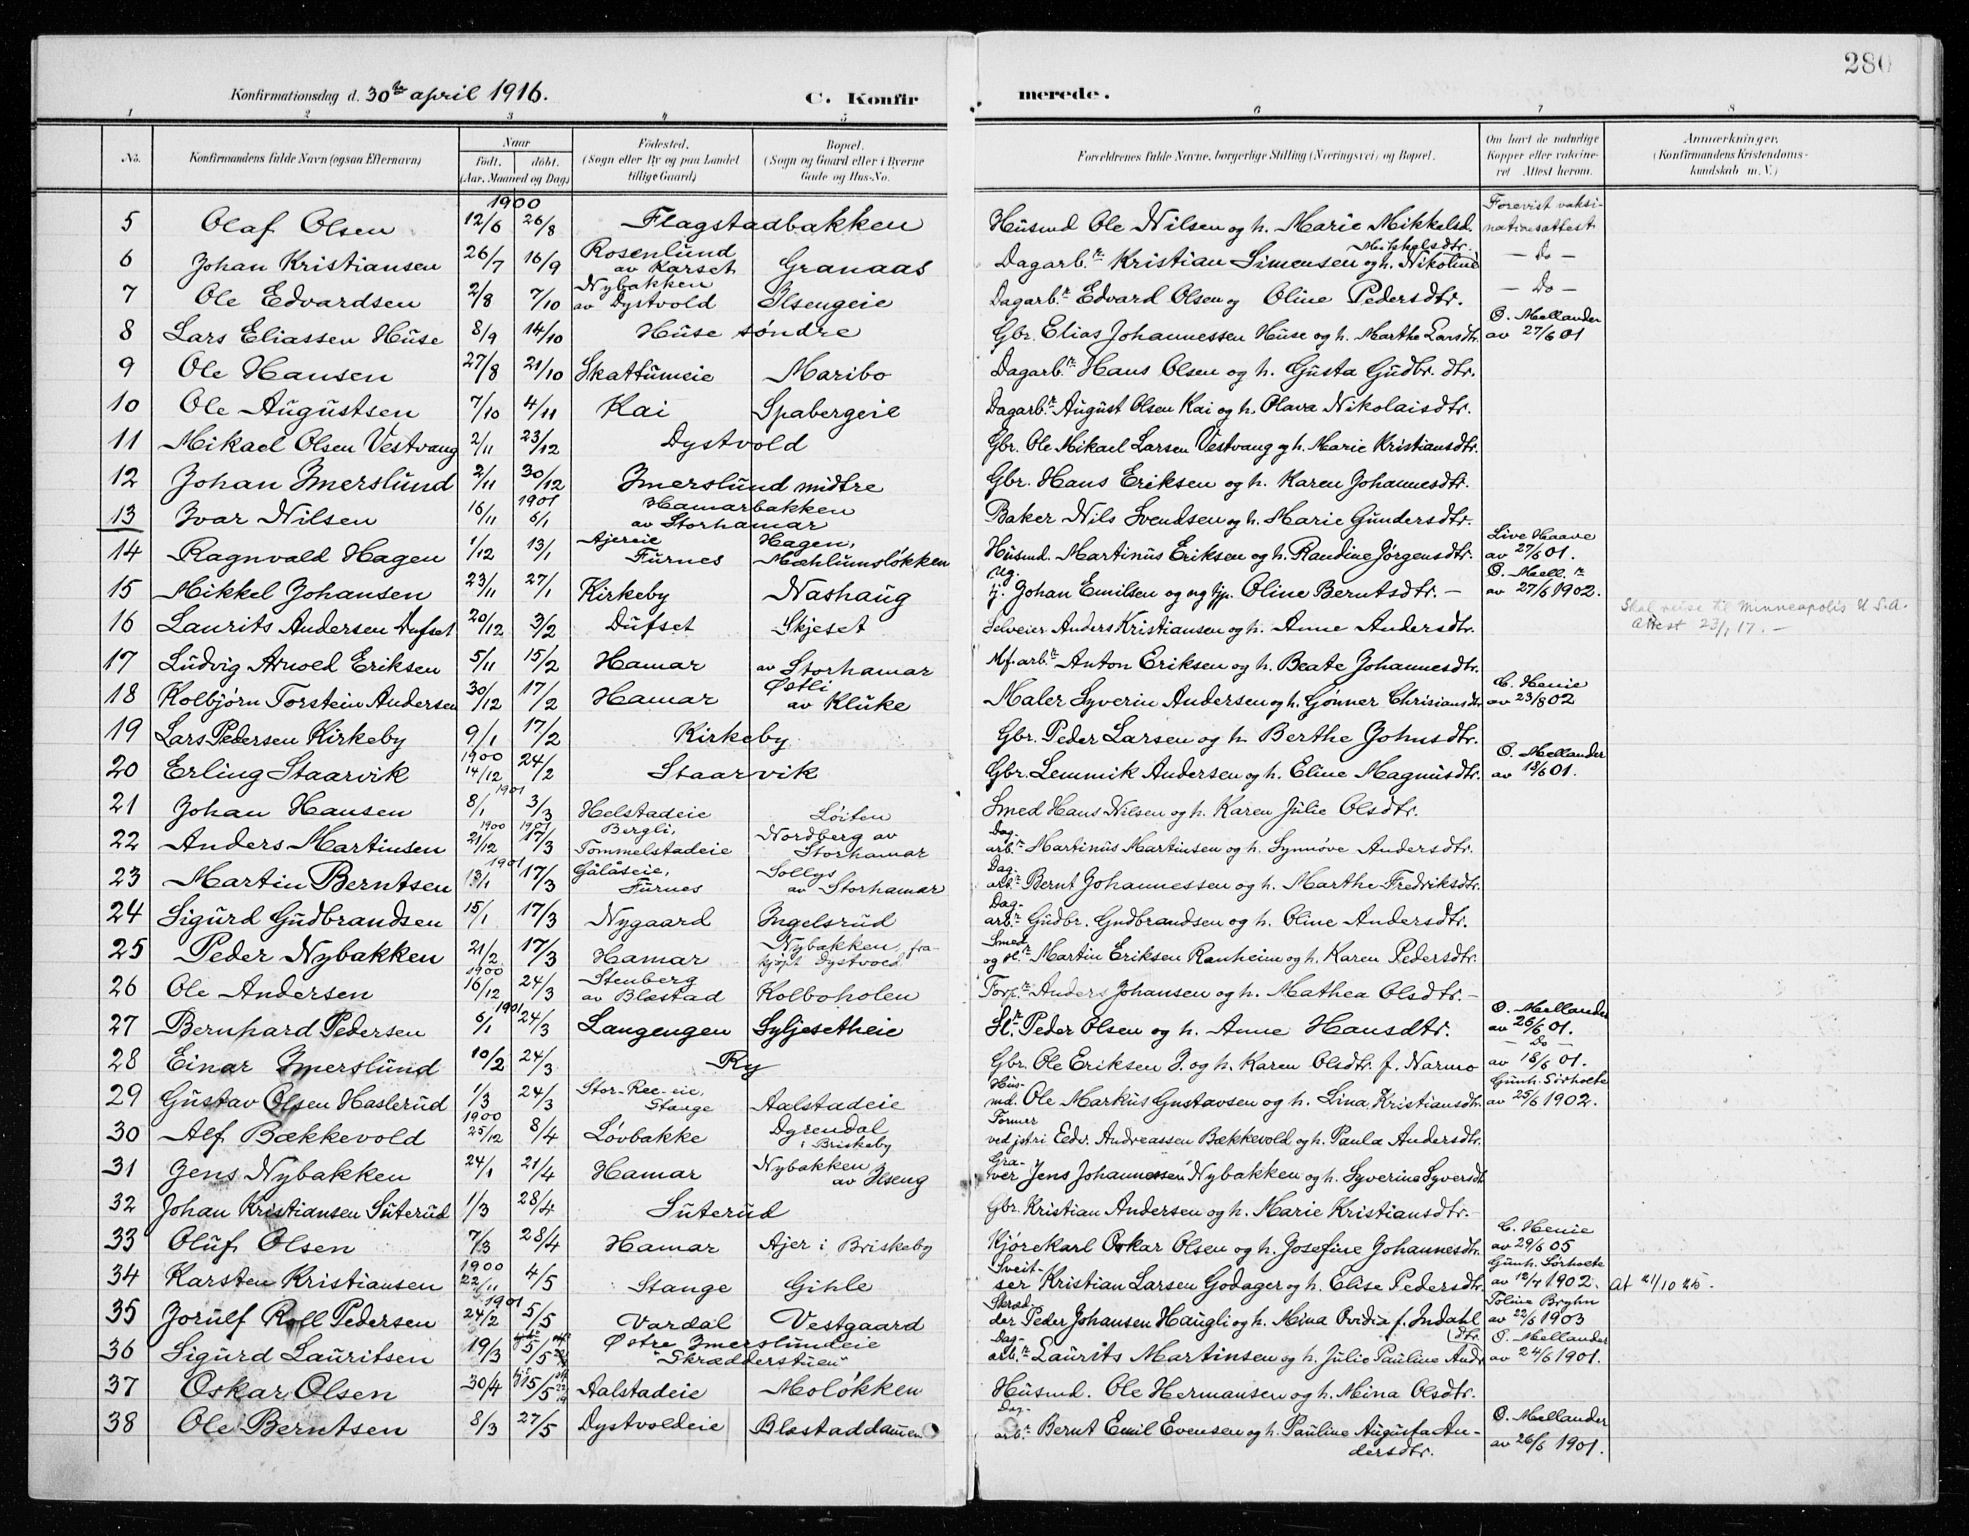 280
Konfirmationsdag d. 30te april 1916. C. Konfirmerede.
1 2 3 4 5 6 7 8
No. Konfirmandens fulde Navn (ogsaa Efternavn) Naar født. døbt. (Aar, Maaned og Dag) Fødested. (Sogn eller By og paa Landet tillige Gaard) Bopæl. (Sogn og Gaard eller i Byerne Gade og Hus-No. Forældrenes fulde Navne, borgerlige Stilling (Næringsvei) og Bopæl. Om havt de naturlige Kopper eller vaccineret Attest herom. Anmærkninger. (Konfirmandens Kristendomskundskab m. V.)
1900
5 Olaf Olsen 12/6 26/8 Flagstadbakken Husmd Ole Nilsen og h. Marie Mikkelsd. Forevist vaksinationsattest
6 Johan Kristiansen 26/7 16/9 Rosenlund av Karset Granaas Dagarb.r Kristian Simensen og h. Nikoline Mikkelsdtr. — Do —
7 Ole Edvardsen 2/8 7/10 Nybakken av Dystvold Ilsengeie Dagarb.r Edvard Olsen og Oline Pedersdtr. — Do —
8 Lars Eliassen Huse 8/9 14/10 Huse søndre Gbr. Elias Johannessen Huse og h. Marthe Larsdtr. O. Mellander av 27/6 01
9 Ole Hansen 27/8 21/10 Skattumeie Maribo Dagarb.r Hans Olsen og h. Gusta Gudbr. dtr.
10 Ole Augustsen 7/10 4/11 Kai Spabergeie Dagarb.r August Olsen Kai og h. Olava Nikolaisdtr.
11 Mikael Olsen Vestvang 2/11 23/12 Dystvold Gbr. Ole Mikael Larsen Vestvang og h. Marie Kristiansdtr.
12 Johan Imerslund 2/11 30/12 Imerslund midtre Gbr. Hans Eriksen og h. Karen Johannesdtr.
13 Ivar Nilsen 16/11 1901 6/1 Hamarbakken av Storhamar Baker Nils Svendsen og h. Marie Gundersdtr.
14 Ragnvald Hagen 1/12 13/1 Ajereie Furnes Hagen, Mæhlumsløkken Husmd. Martinus Eriksen og h. Randine Jørgensdtr. Live Haave av 27/6 01.
15 Mikkel Johansen 23/11 27/1 Kirkeby Nashaug Ug. Johan Emilsen og ug Oline Berntsdtr. — O. Mell. r av 27/6 1902.
16 Laurits Andersen Dufset 20/12 3/2 Dufset Skjeset Selveier Anders Kristiansen og h. Anne Andersdtr. Skal reise til Minneapolis U.S.A. Attest 23/1 17. —
17 Ludvig Arnold Eriksen 5/11 15/2 Hamar av Storhamar Mf. arb.r Anton Eriksen og h. Beate Johannesdtr.
18 Kolbjørn Torstein Andersen 30/12 17/2 Hamar Østli av Kluke Maler Syverin Andersen og h. Gønner Chrisiansdtr C. Henie av 23/8 02
19 Lars Pedersen Kirkeby 9/1 17/2 Kirkeby Gbr. Peder Larsen og h. Berthe Johnsdtr.
20 Erling Staarvik 1900 14/12 24/2 Staarvik Gbr. Lemmik Andersen og h. Eline Magnusdtr. O. Mellander av 18/6 01.
21 Johan Hansen 1901 8/1 3/3 Helstadeie Løiten Smed Hans Nilsen og h. Karen Julie Olsdtr.
22 Anders Martinsen 1900 21/12 1901 17/3 Bergli, Tommelstadeie Nordberg av Storhamar Dagarb.r Martinus Martinsen og h. Synnøve Andersdtr.
23 Martin Berntsen 1901 13/1 17/3 Gålåseie, Furnes Sollys av Storhamar Dagarb.r Bernt Johannessen og h. Marthe Fredriksdtr.
24 Sigurd Gudbrandsen 15/1 17/3 Nygaard Ingelsrud Dagarb.r Gudbr. Gudbrandsen og h. Oline Andersdtr.
25 Peder Nybakken 21/2 17/3 Hamar Nybakken, frakjøpt Dystvold Smed og sl.r Martin Eriksen Ranheim og h. Karen Pedersdtr.
26 Ole Andersen 1900 16/12 24/3 Stenberg av Blæstad Kolboholen Forp.r Anders Johansen og h. Mathea Olsdtr. —
27 Bernhard Pedersen 1901 6/1 24/3 Langengen Syljesetheie Sl.r Peder Olsen og h. Anne Hansdtr. O. Mellander av 26/6 01.
28 Einar Imerslund 10/2 24/3 Ry Gbr. Ole Eriksen I. og h. Karen Olsdtr. f. Narmo — Do — av 18/6 01.
29 Gustav Olsen Haslerud 1/3 24/3 Stor-Ree-eie, Stange Aalstadeie Husmd. Ole Markus Gustavsen og h. Lina Kristiansdtr. Gunh. Sørholte av 25/6 1902.
30 Alf Bækkevold 1900 25/12 8/4 Løvbakke Dyrendal i Briskeby Former ved jstri Edv. Andreassen Bækkevold og h. Paula Andersdtr.
31 Jens Nybakken 24/1 21/4 Hamar Nybakken av Ilseng Graver Jens Johannessen Nybakken og h. Syverine Syversdt
32 Johan Kristiansen Suterud 1/3 28/4 Suterud Gbr. Kristian Andersen og h. Marie Kristiansdtr. —
33 Oluf Olsen 7/3 28/4 Hamar Ajer i Briskeby Kjørekarl Oskar Olsen og h. Josefine Johannesdtr. C. Henie av 29/6 05
34 Karsten Kristiansen 1900 22/11 4/5 Stange Gihle Sveitser Kristian Larsen Godager og h. Elise Pedersdtr Gunh. Sørholte av 12/7 1902. At 21/10 25.
35 Jorulf Roll Pedersen 1901 24/2 5/5 Vardal Vestgaard Skrædder Peder Johansen Haugli og h. Mina Ovidia f. Indahl Toline Bryhn av 22/6 1903
36 Sigurd Lauritsen 19/3 5/5 Østre Imerslundeie "Skrædderstuen" Dagarb.r Laurits Martinsen og h. Julie Pauline Andr. dtr. O. Mellander av 24/6 1901.
37 Oskar Olsen 30/4 15/5 Aalstadeie Moløkken Husmd. Ole Hermansen og h. Mina Olsdtr.
38 Ole Berntsen 8/3 27/5 Dystvoldeie Blæstaddammen Dagarb.r Bernt Emil Evensen og h. Pauline Augusta Andersdtr. O. Mellander av 26/6 1901.